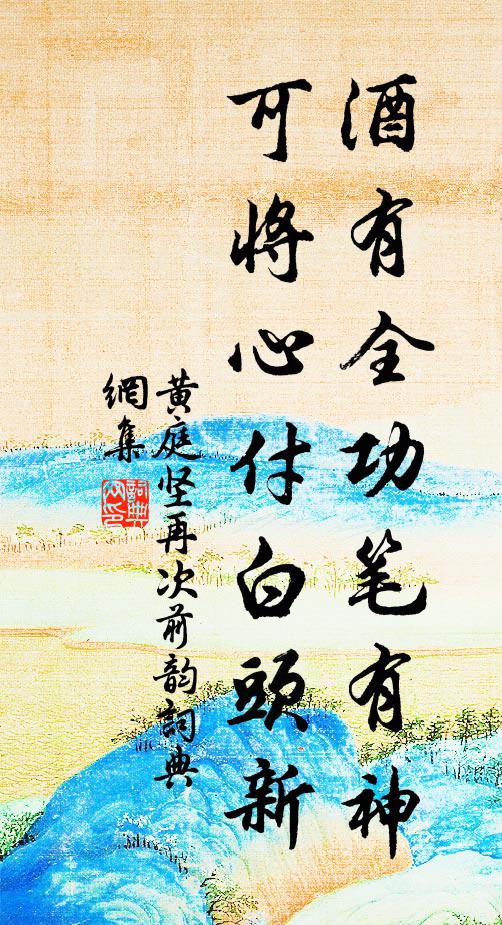 酒有全功笔有神
可将心付白頭新
黄庭坚再次前韵詞典
網集
詞典